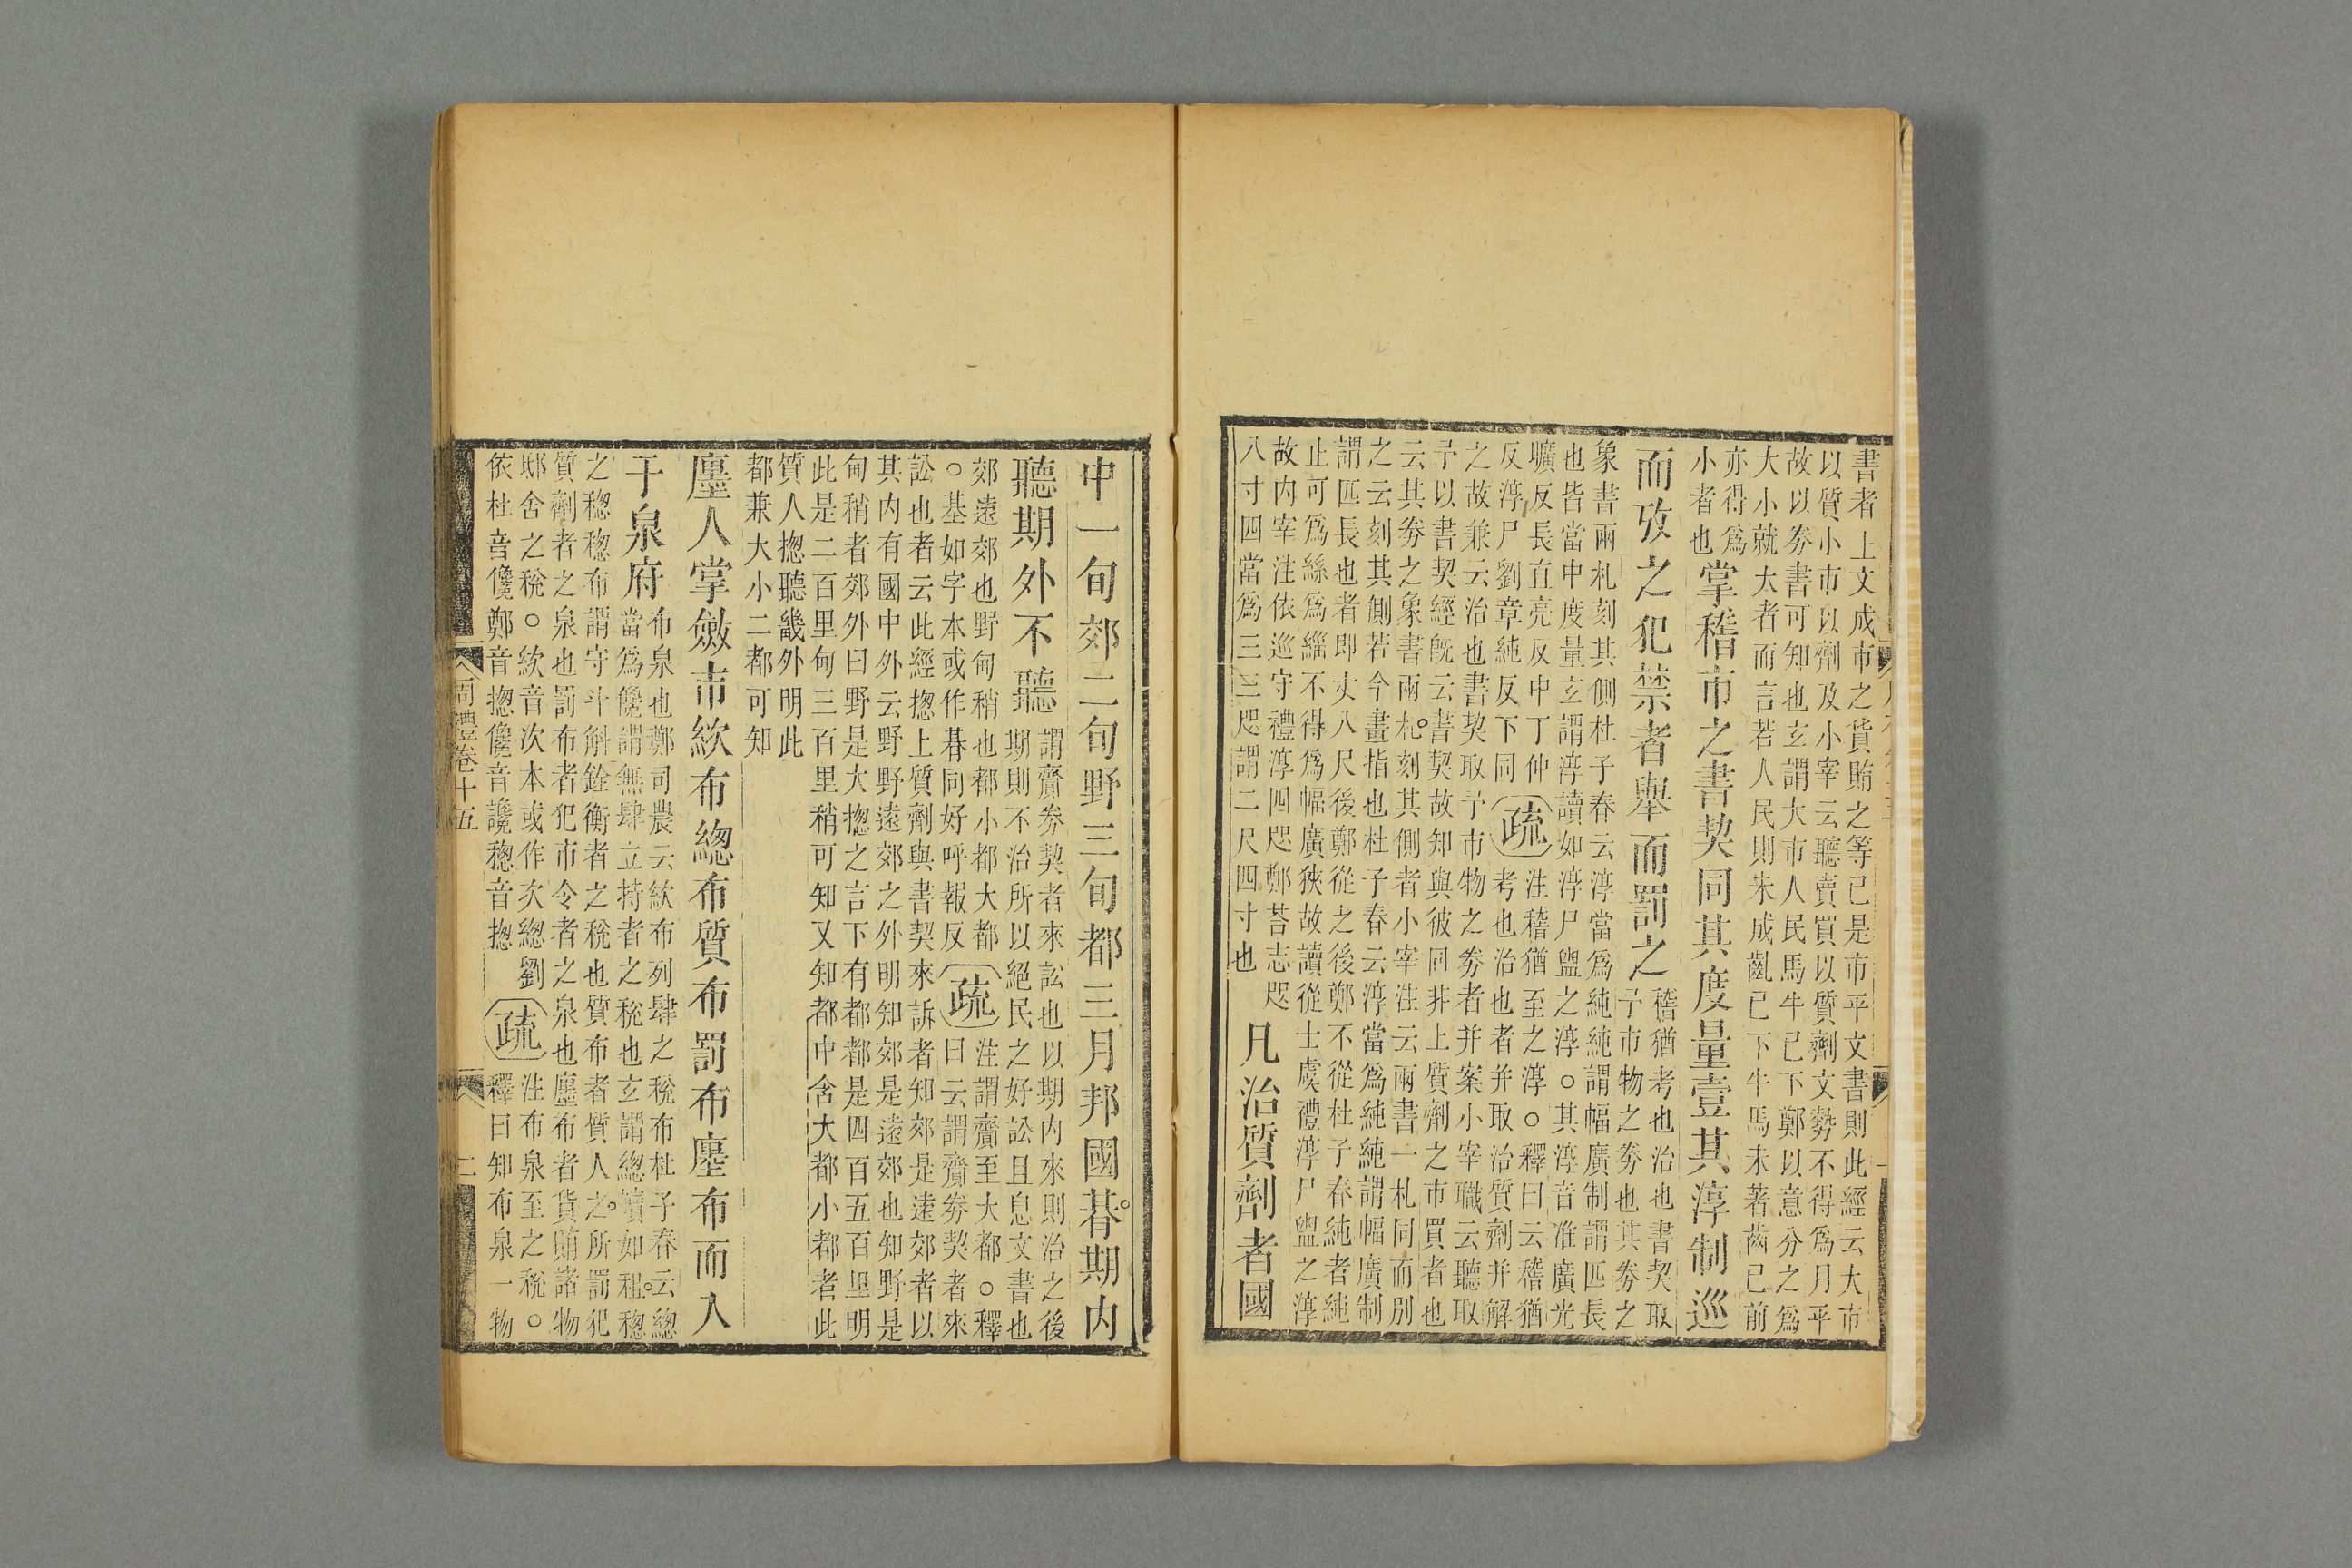 書者上文成市之貨賄之等已是市平文書則此經云大市
以質小市以劑及小宰云聽賣買以質劑文勢不得爲月平
故以劵書可知也玄謂大市人民馬牛已下鄭以意分之爲
大小就大者而言若人民則未成齓已下牛馬未著齒已前
亦得爲
小者也
掌稽市之書契同其度量壹其淳制巡
而攷之犯禁者舉而罰之
稽猶考也治也書契取
予市物之劵也其劵之
象書兩札刻其側杜子春云淳當爲純純謂幅廣制謂匹長
也皆當中度量玄謂淳讀如淳尸盥之淳○其淳音准廣光
曠反長直亮反中丁仲
反淳尸劉章純反下同
疏
注稽猶至之淳○釋曰云稽猶
考也治也者并取治質劑并解
之故兼云治也書契取予市物之劵者并案小宰職云聽取
予以書契經旣云書契故知與彼同非上質劑之市買者也
云其劵之象書兩札刻其側者小宰注云兩書一札同而別
之云刻其側若今畫指也杜子春云淳當爲純純謂幅廣制
謂匹長也者即丈八尺後鄭從之後鄭不從杜子春純者純
止可爲絲爲緇不得爲幅廣狹故讀從士虞禮淳尸盥之淳
故内宰注依巡守禮淳四咫鄭荅志咫
八寸四當爲三三咫謂二尺四寸也
凡治質劑者國
中一旬郊二旬野三旬都三月邦國朞期内
聽期外不聽
謂齎劵契者來訟也以期内來則治之後
期則不治所以絕民之好訟且息文書也
郊遠郊也野甸稍也都小都大都
○基如字本或作朞同好呼報反
疏
注謂齎至大都○釋
曰云謂齎劵契者來
訟也者云此經揔上質劑與書契來訴者知郊是遠郊者以
其内有國中外云野野遠郊之外明知郊是遠郊也知野是
甸稍者郊外曰野是大揔之言下有都都是四百五百里明
此是二百里甸三百里稍可知又知都中含大都小都者此
質人揔聽畿外明此
都兼大小二都可知
廛人掌斂市絘布緫布質布罰布廛布而入
于泉府
布泉也鄭司農云絘布列肆之稅布杜子春云緫
當爲儳謂無肆立持者之稅也玄謂緫讀如租稯
之稯稯布謂守斗斛銓衡者之稅也質布者質人之所罰犯
質劑者之泉也罰布者犯市令者之泉也廛布者貨賄諸物
邸舍之稅○絘音次本或作次緫劉
依杜音儳鄭音揔儳音讒稯音揔
疏
注布泉至之稅○
釋曰知布泉一物
周禮卷十五
二